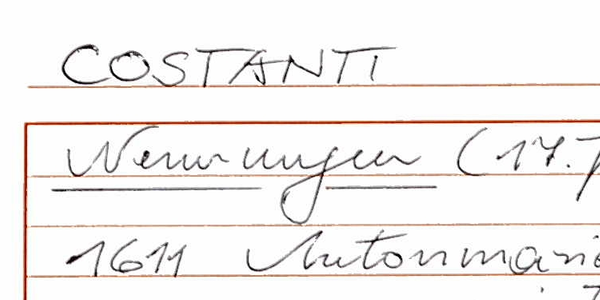 COSTANTI
Nennungen (17.
1611 Antonmaria